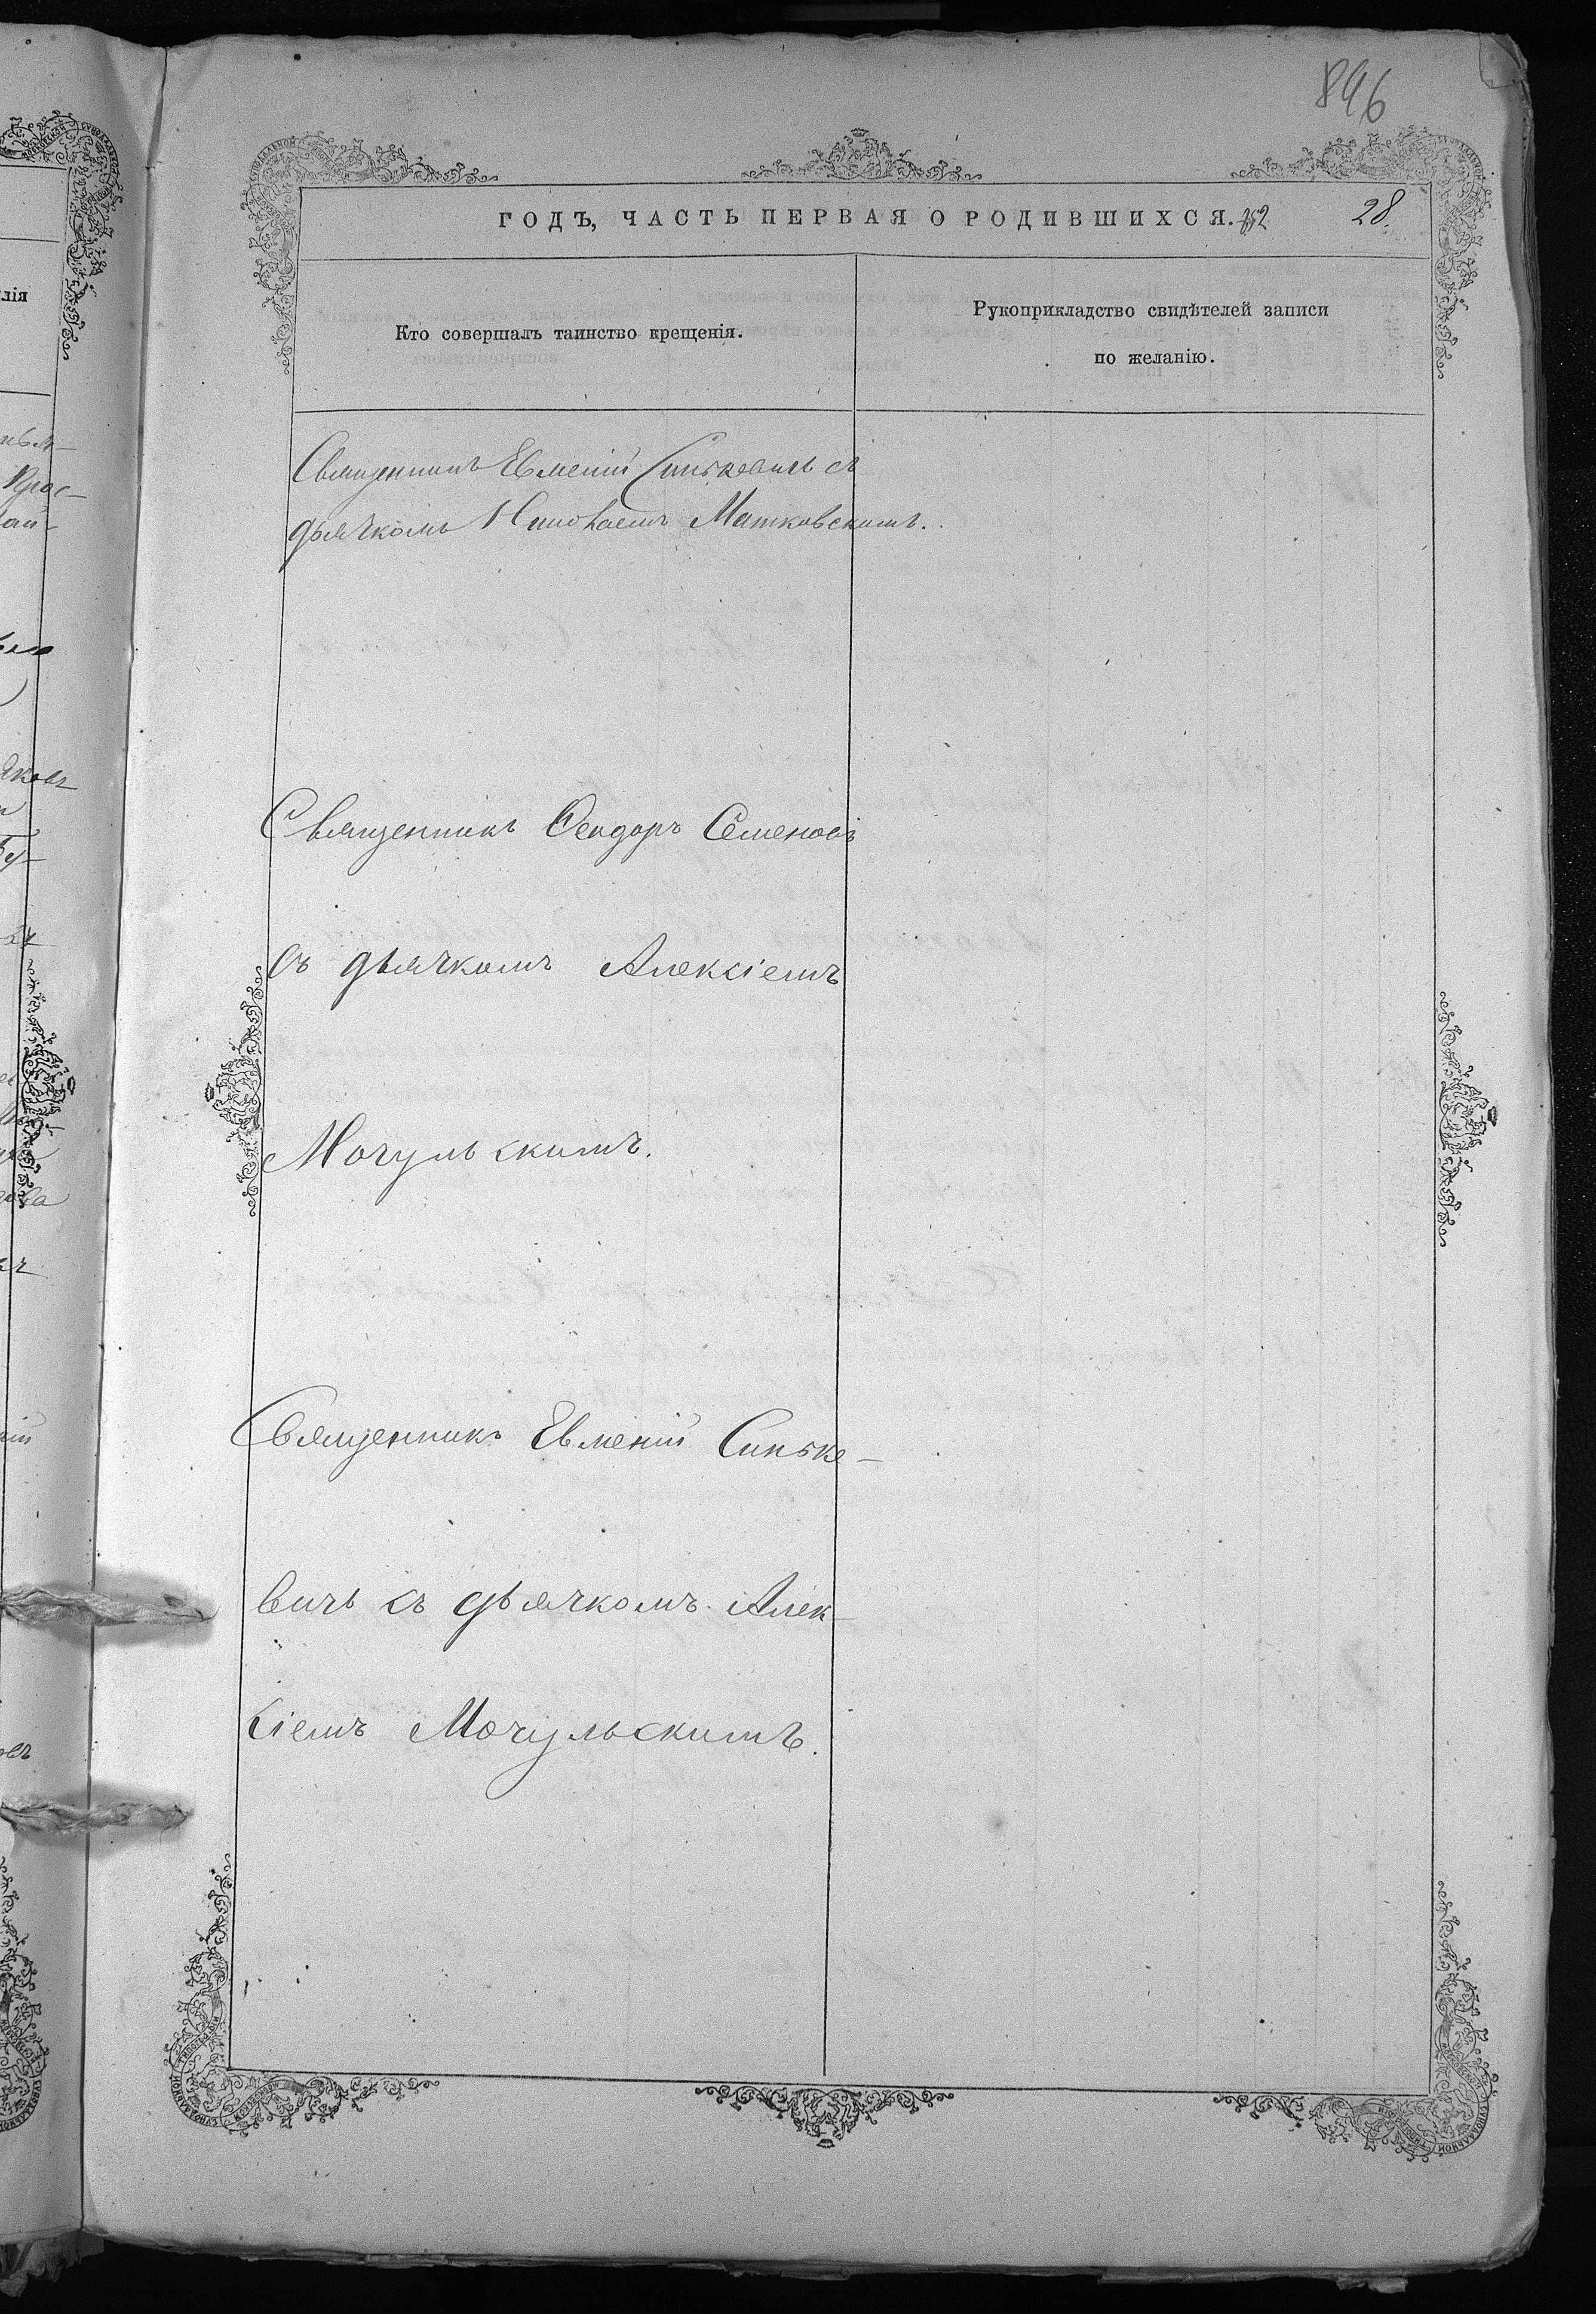 896
ГОДЪ, ЧАСТЬ ПЕРВАЯ О РОДИВШИХСЯ. 28.
Кто совершалъ таинство крещенія.
Рукоприкладство свидѣтелей записи
по желанію.
Священникъ Евменій Синькевичъ съ
дьячкомъ Николаемъ Матковскимъ.
Священникъ Ѳеодоръ Семеновъ
съ дьячкомъ Алексіемъ
Мочульскимъ.
Священникъ Евменій Синьке-
вичъ съ дьячкомъ Алек-
сіемъ Мочульскимъ.